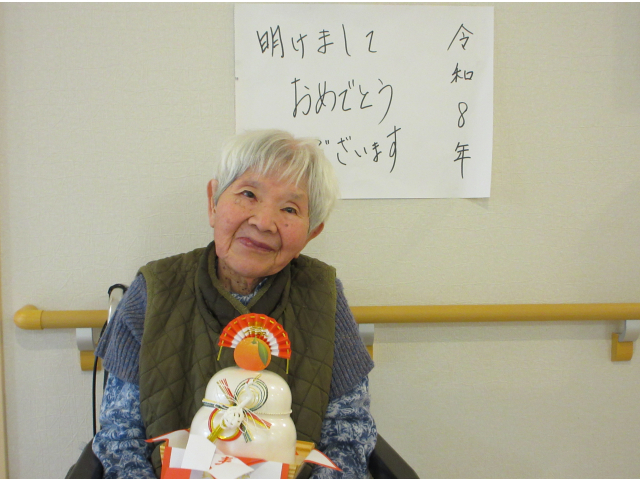 令和8年
明けまして
おめでとう
ございます